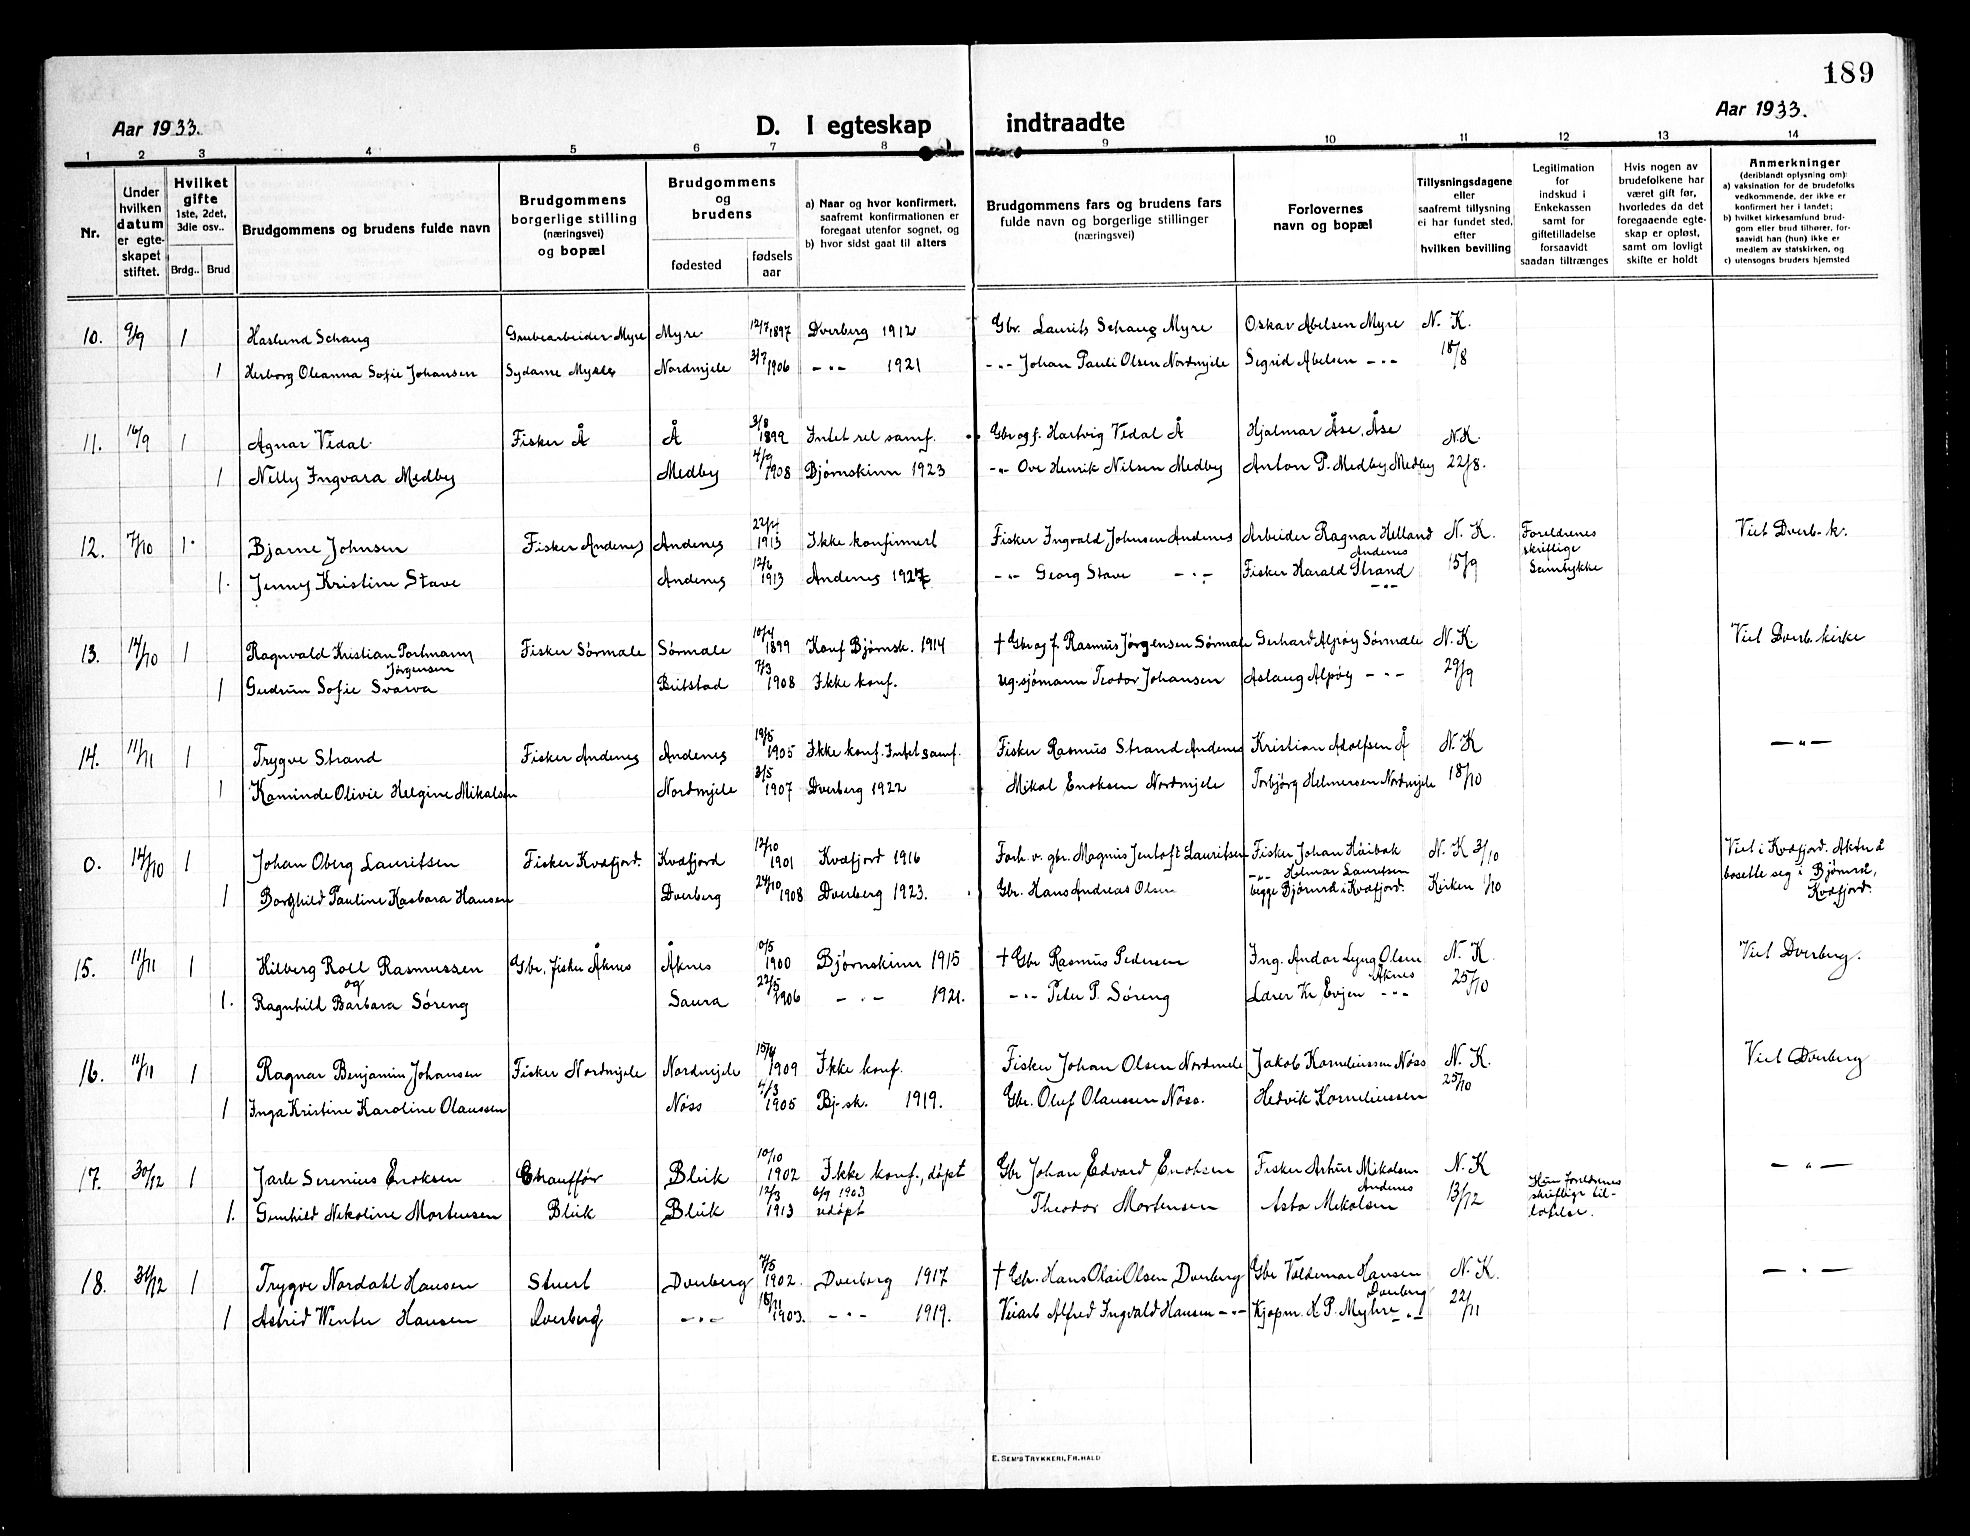 189
Aar 1933. D. I egteskap indtraadte Aar 1933.
1 2 3 4 5 6 7 8 9 10 11 12 13 14
Nr.
Under hvilken datum er egteskapet stiftet.
Hvilket gifte 1ste, 2det, 3dle osv..
Brdg.. Brud
Brudgommens og brudens fulde navn
Brudgommens borgerlige stilling (næringsvei) og bopæl
Brudgommens og brudens
fødested
fødsels aar
a) Naar og hvor konfirmert, saafremt konfirmationen er foregaat utenfor sognet, og
b) hvor sidst gaat til alters
Brudgommens fars og brudens fars fulde navn og borgerlige stillinger (næringsvei)
Forlovernes navn og bopæl
Tillysningsdagene eller saafremt tillysning ei har fundet sted, efter hvilken bevilling
Legitimation for indskud i Enkekassen samt for giftetilladelse forsaavidt saadan tiltrænges
Hvis nogen av brudefolkene har været gift før, hvorledes da det foregaaende egteskap er opløst, samt om lovligt skifte er holdt
Anmerkninger (deriblandt oplysning om):
a) vaksination for de brudefolks vedkommende, der ikke er konfirmert her i landet;
b) hvilket kirkesamfund brudgom eller brud tilhører, forsaavidt han (hun) ikke er medlem av statskirken, og
c) utensogns bruders hjemsted
10. 9/9 1 Haslund Schaug Grubearbeider Myre Myre 12/7 1897 Dverberg 1912 Gbr. Laurits Schaug Myre Oskar Abelsen Myre N. K.
1 Herborg Oleanna Sofie Johansen Sydame Nordmjele 3/7 1906 -"- 1921 -"- Johan Pauli Olsen Nordmjele Sigrid Abelsen -"- 18/8
11. 16/9 1 Agnar Vidal Fisker Å Å 3/8 1899 Intet rel samf. Gbr og f. Hartvig Vidal Å Hjalmar Åse, Åse N.K.
1 Nelly Ingvara Medby Medby 4/9 1908 Bjørnskinn 1923 -"- Ove Henrik Nilsen Medby Anton P. Medby Medby 22/8.
12. 7/10 1 Bjarne Johnsen Fisker Andenes Andenes 1913 Ikke konfirmert Fisker Ingvald Johnsen Andenes Arbeider Ragnar Helland Andenes N. K. Foreldrenes skriftlige Samtykke Viet Dverb. k.
1. Jenny Kristine Stave Andenes 12/6 1913 Andenes 1927 -"- Georg Stave -"- Fisker Harald Strand -"- 15/9
13. 14/10 1 Ragnvald Kristian Portmann Jørgensen Fisker Sørmale Sørmale 10/4 1899 Konf Bjørnsk. 1914 † Gbr og f. Rasmus Jørgensen Sørmale Gerhard Alpøy Sørmale N. K. Viet Dverb. kirke
1 Gudrun Sofie Svarva Beitstad 7/3 1908 Ikke konf. ug. sjømann Teodor Johansen Aslaug Alpøy -"- 29/9
14. 11/11 1 Trygve Strand Fisker Andenes Andenes 19/5 1905 Ikke konf. Intet samf. Fisker Rasmus Strand Andenes Kristian Adolfsen Å N. K -"-
1 Kaminde Olivie Helgine Mikalsen Nordmjele 3/5 1907 Dverberg 1922 Mikal Enoksen Nordmjele Torbjørg Helmersen Nordmjele 18/10
0. 14/10 1 Johan Oberg Lauritsen Fisker Kvæfjord. Kvæfjord 12/10 1901 Kvæfjord 1916 Forh. v. gbr. Magnus Jentoft Lauritsen Fisker Johan Høibak N. K 3/10 Viet i Kvæfjord. Akter å bosette seg i Bjørnrå, Kvæfjord.
1 Borghild Pauline Kasbara Hansen Dverberg 24/10 1908 Dverberg 1923. Gbr. Hans Andreas Olsen -"- Helmar Lauritsen begge Bjørnrå i Kvæfjord. Kirken 1/10
15. 11/11 1 Hilberg Roll Rasmussen Gbr, fisker Åknes Åknes 1900 Bjørnskinn 1915 † Gbr Rasmus Pedersen Ing. Andor Lyng Olsen Åknes N. K. Viet Dverberg.
og
1. Ragnhild Barbara Søreng Saura 22/5 1906 -"- 1921. -"- Peter P. Søreng Lærer Kr Evjen -"- 25/10
16. 11/11 1 Ragnar Benjamin Johansen Fisker Nordmjele Nordmjele 15/4 1909 Ikke konf. Fisker Johan Olsen Nordmele Jakob Korneliussen Nøss N. K. Viet Dverberg
1 Inga Kristine Karoline Olaussen Nøss 4/3 1905 Bj.sk. 1919. Gbr. Oluf Olaussen Nøss. Hedvik Korneliussen 25/10
17. 30/12 1 Jarle Serenius Enoksen Chauffør Bleik 10/10 1902 Ikke konf., døpt 6/9 1903 Gbr Johan Edvard Enoksen Fisker Arthur Mikalsen Andenes N. K Hun foreldrenes skriftlige tillatelse. -"-
1. Gunhild Nikoline Mortensen Bleik Bleik 12/3 1913 udøpt Theodor Mortensen Asta Mikalsen 13/12
18. 31/12 1 Trygve Nordahl Hansen Stuert Dverberg 7/5 1902. Dverberg 1917 † Gbr. Hans Olai Olsen Dverberg Gbr Valdemar Hansen Dverberg N. K. -"-
1 Astrid Winter Hansen Dverberg -"- 18/11 1903. -"- 1919. Veiarb Alfred Ingvald Hansen -"- Kjøpm. K. P. Myhre -"- 22/11
E. SEM'S TRYKKERI, FR. HALD